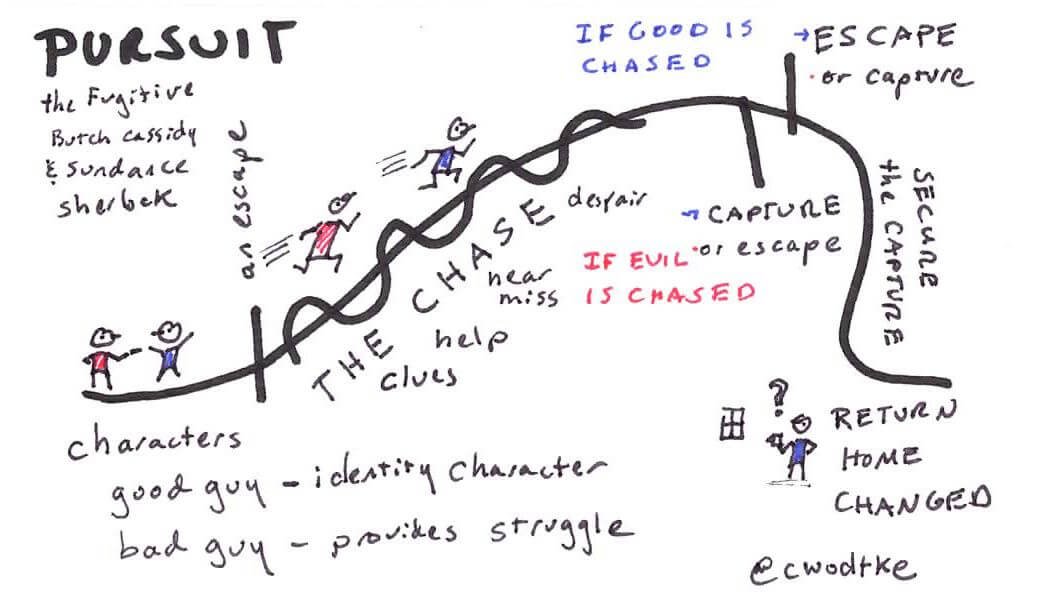 PURSUIT
the Fugitive
Butch Cassidy
& Sundance
sherlock
an escape
IF GOOD IS
CHASED
→ESCAPE
·or capture
THE CHASE
despair
near
miss
help
clues
→CAPTURE
·or escape
IF EVIL
IS CHASED
SECURE
the CAPTURE
?
RETURN
HOME
CHANGED
characters
good guy - identity character
bad guy - provides struggle
@cwodtke